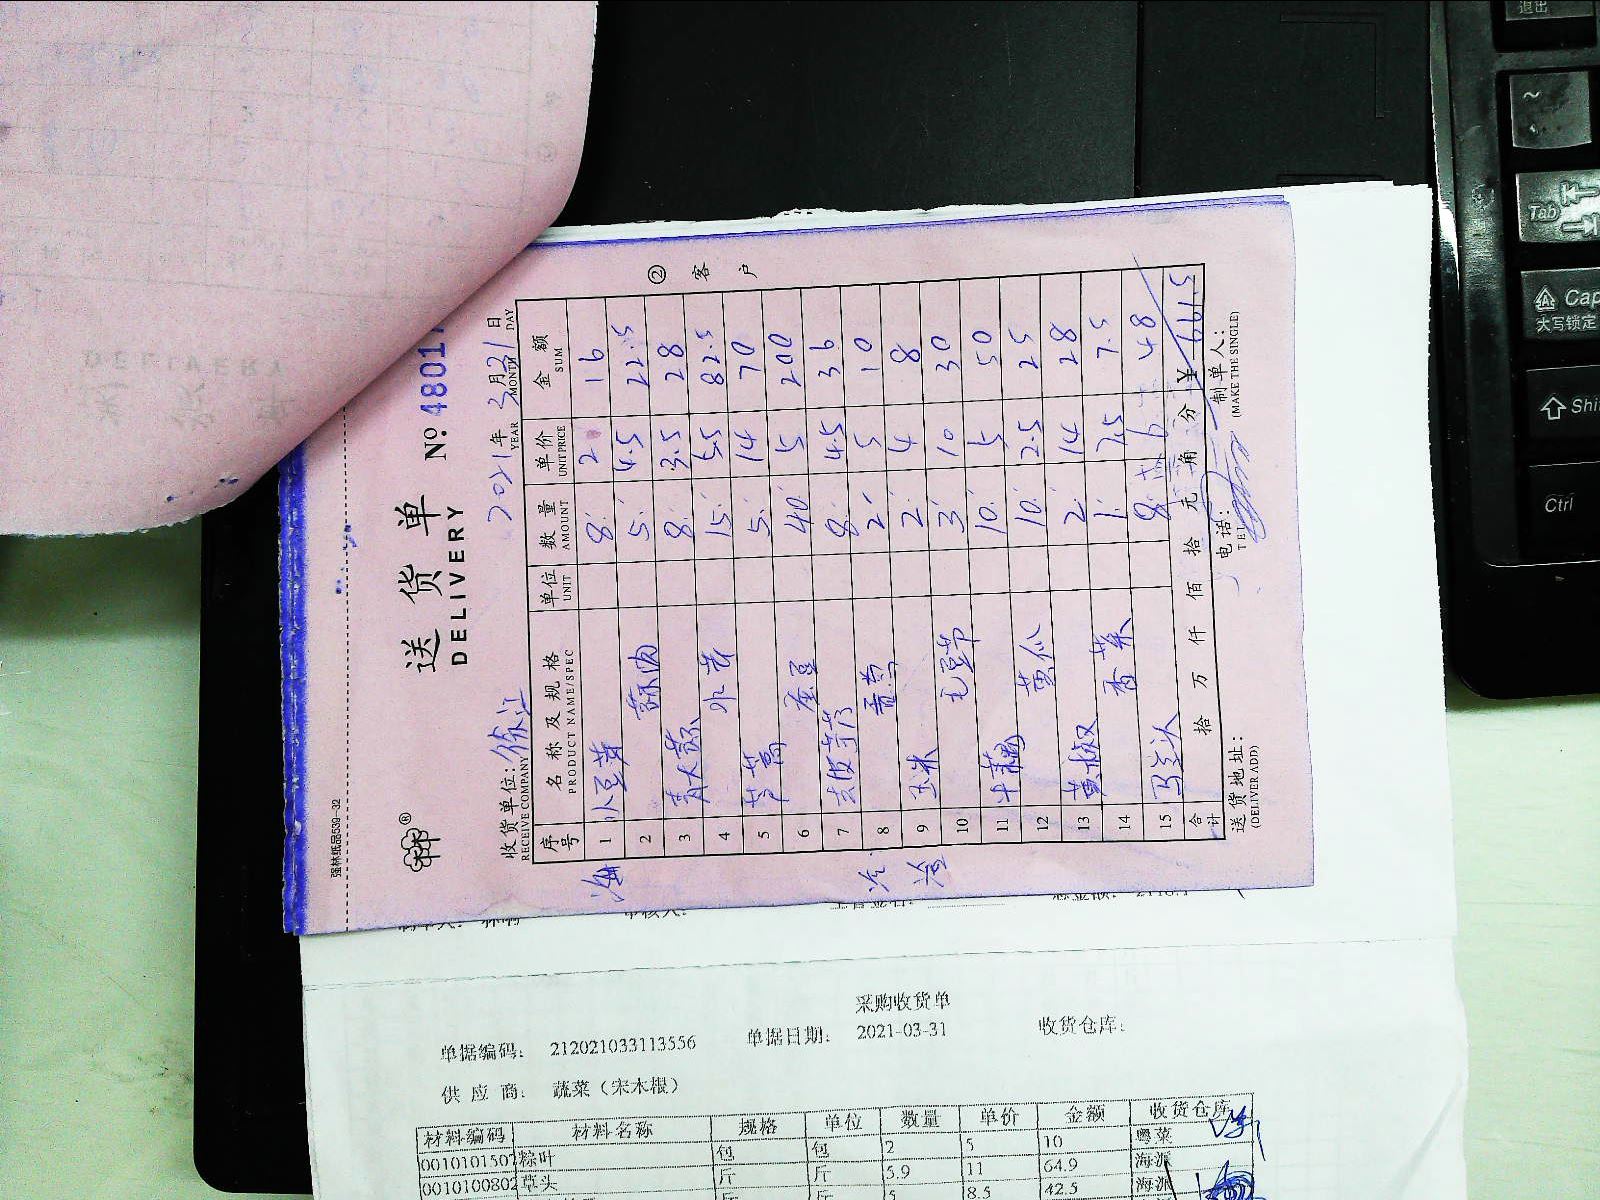 强林纸品539-32
送货单
DELIVERY
No. 48017
收货单位: 徐汇
RECEIVE COMPANY
2021年 3月31日
YEAR MONTH DAY
② 客户
序号 名称及规格 单位 数量 单价 金额
PRODUCT NAME/SPEC UNIT AMOUNT UNITPRICE SUM
1 小豆芽 8 2 16
2 蒜肉 5 4.5 22.5
3 青大蒜 8 3.5 28
4 水芹 15 5.5 82.5
5 芦蒿 5 14 70
6 蚕豆 40 5 200
7 去皮芋艿 8 4.5 36
8 2 5 10
9 玉米 2 4 8
10 毛豆节 3 10 30
11 牛藕 10 5 50
12 黄瓜 10 2.5 25
13 黄椒 2 14 28
14 香菜 1 7.5 7.5
15 马兰头 8 6 48
合计 拾 万 仟 佰 拾 元 角 分 ¥ 661.5
送货地址:
(DELIVER ADD)
电话:
TEL
制单人:
(MAKE THE SINGLE)
海
采购收货单
单据编码: 212021033113556 单据日期: 2021-03-31 收货仓库:
供应商: 蔬菜(宋木根)
材料编码 材料名称 规格 单位 数量 单价 金额 收货仓库
0010101507 粽叶 包 包 2 5 10 粤菜
0010100802 草头 斤 斤 5.9 11 64.9 海派
5 8.5 42.5 海派
退出
~
Tab
Cap
大写锁定
Shi
Ctrl